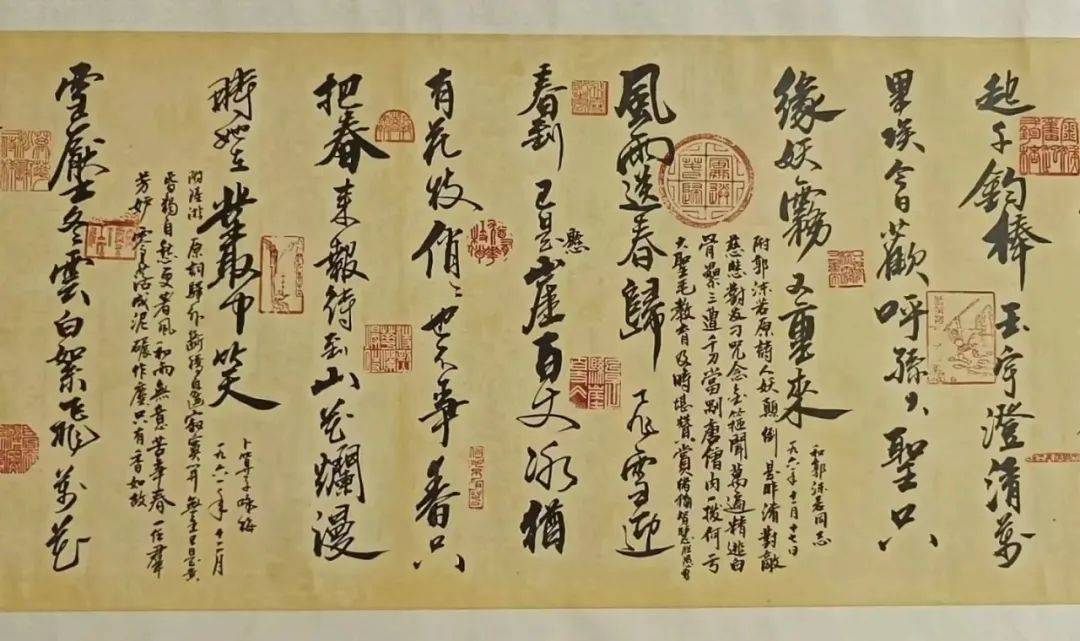 起千鈞棒玉宇澄清萬
里埃今日歡呼孫大聖只
緣妖霧又重來
和郭沫若同志
一九六一年十一月十七日
附郭沫若原詩人妖顛倒是非淆對敵
慈悲對友刁咒念金箍聞萬遍精逃白
骨累三遭千刀當剮唐僧肉一拔何亏
大聖毛教育及時堪贊賞猪猶智慧勝愚曹
風雨送春歸飛雪迎
春到已是懸崖百丈冰猶
有花枝俏俏也不争春只
把春來報待到山花爛漫
時她在叢中笑
卜算子咏梅
一九六一年十二月
附陸游原詞驛外斷橋邊寂寞開無主已是黄
昏獨自愁更著風和雨無意苦争春一任羣
芳妒零落成泥碾作塵只有香如故
雪壓冬雲白絮飛萬花